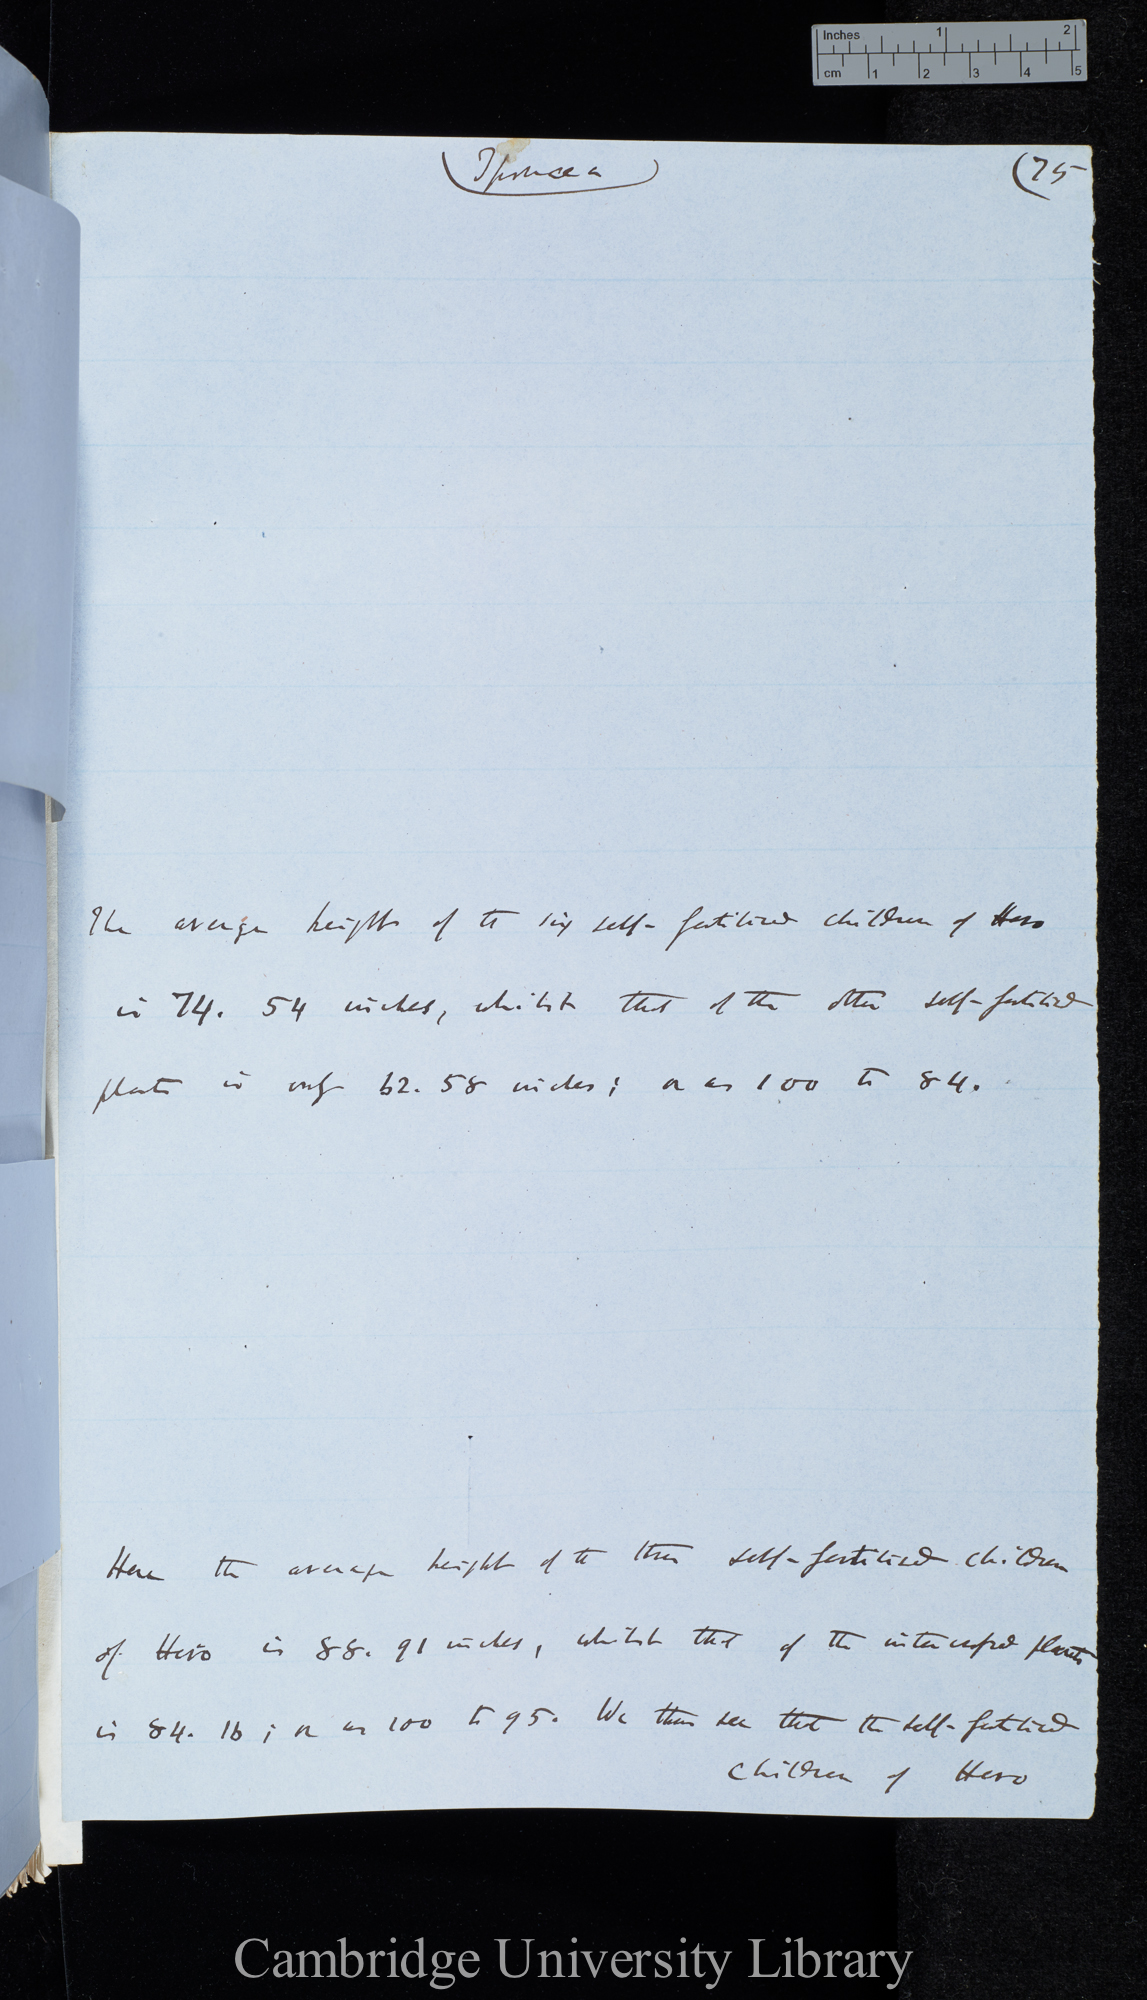 Inches 1 2
cm 1 2 3 4 5
Ipomoea
(75
The average height of the six self-fertilised children of Hero
is 74. 54 inches, whilst that of the other self-fertilised
plants is only 62. 58 inches; or as 100 to 84.
Here the average height of the three self-fertilised children
of Hero is 88. 91 inches, whilst that of the intercrossed plants
is 84. 16; or as 100 to 95. We thus see that the self-fertilised
children of Hero
Cambridge University Library